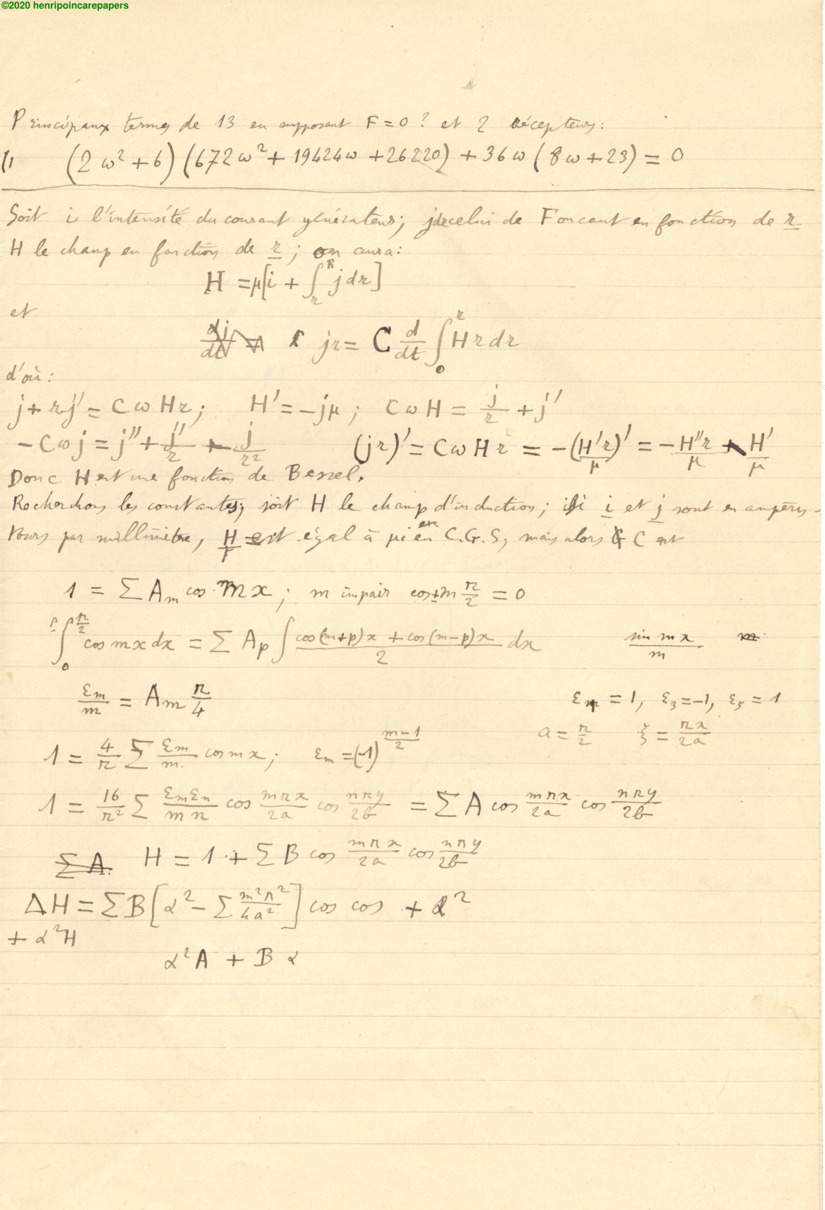 ©2020 henripoincarepapers
Principaux termes de 13 en supposant F=0? et 2 récepteurs:
(2ω²+6)(672ω²+19424ω+26220)+36ω(8ω+23)=0
Soit i l'intensité du courant générateur; j celui de Foucault en fonction de r
H le champ en fonction de r; on aura:
H = μ[i + ∫_r^R j dr]
et
jr = C d/dt ∫_0^r H r dr
d'où:
j + rj' = CωHr; H' = -jμ; CωH = j/r + j'
-Cωj = j'' + j'/r j/r² (jr)' = CωHr = -(H'r)'/μ = -H''r/μ H'/μ
Donc H est une fonction de Bessel.
Recherchons les constantes; soit H le champ d'induction; si i et j sont en ampères-
tours par millimètre, H/μ est égal à μi en C.G.S, mais alors C est
1 = Σ A_m cos mx; m impair cos m π/2 = 0
∫_0^{π/2} cos mx dx = Σ A_p ∫ (cos(m+p)x + cos(m-p)x)/2 dx sin mx/m
ε_m/m = A_m π/4 ε_1 = 1, ε_3 = -1, ε_5 = 1
a = π/2 ξ = πx/2a
1 = 4/π Σ ε_m/m cos mx; ε_m = (-1)^{(m-1)/2}
1 = 16/π² Σ ε_m ε_n/m n cos mπx/2a cos nπy/2b = Σ A cos mπx/2a cos nπy/2b
Σ A H = 1 + Σ B cos mπx/2a cos nπy/2b
ΔH = Σ B [α² - Σ m²π²/4a²] cos cos + α²
+ α²H
α²A + B α